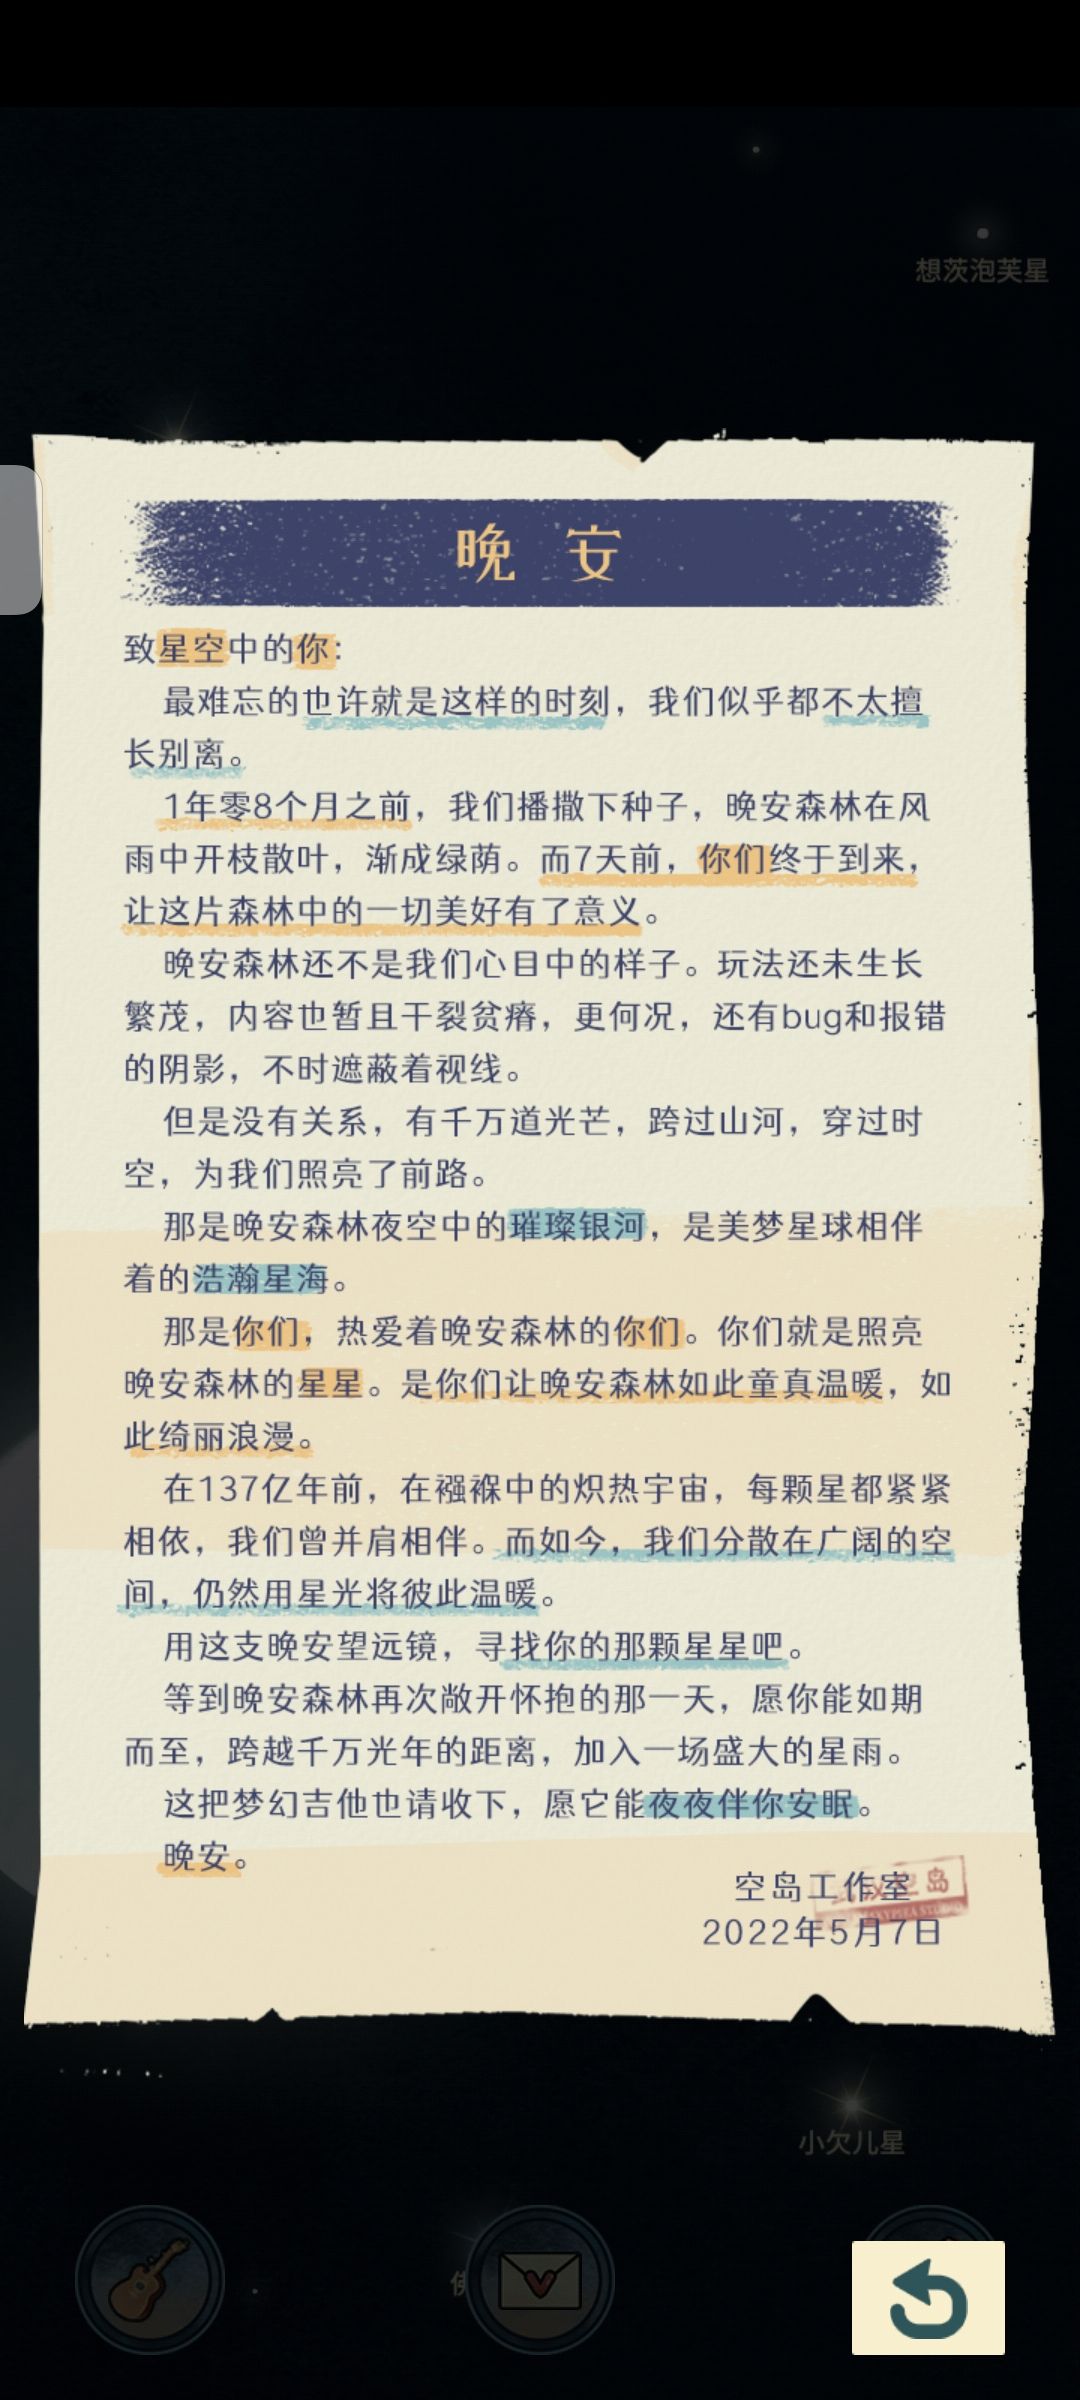 想茨泡芙星
晚 安
致星空中的你：
最难忘的也许就是这样的时刻，我们似乎都不太擅
长别离。
1年零8个月之前，我们播撒下种子，晚安森林在风
雨中开枝散叶，渐成绿荫。而7天前，你们终于到来，
让这片森林中的一切美好有了意义。
晚安森林还不是我们心目中的样子。玩法还未生长
繁茂，内容也暂且干裂贫瘠，更何况，还有bug和报错
的阴影，不时遮蔽着视线。
但是没有关系，有千万道光芒，跨过山河，穿过时
空，为我们照亮了前路。
那是晚安森林夜空中的璀璨银河，是美梦星球相伴
着的浩瀚星海。
那是你们，热爱着晚安森林的你们。你们就是照亮
晚安森林的星星。是你们让晚安森林如此童真温暖，如
此绮丽浪漫。
在137亿年前，在襁褓中的炽热宇宙，每颗星都紧紧
相依，我们曾并肩相伴。而如今，我们分散在广阔的空
间，仍然用星光将彼此温暖。
用这支晚安望远镜，寻找你的那颗星星吧。
等到晚安森林再次敞开怀抱的那一天，愿你能如期
而至，跨越千万光年的距离，加入一场盛大的星雨。
这把梦幻吉他也请收下，愿它能夜夜伴你安眠。
晚安。
空岛工作室
2022年5月7日
小欠儿星